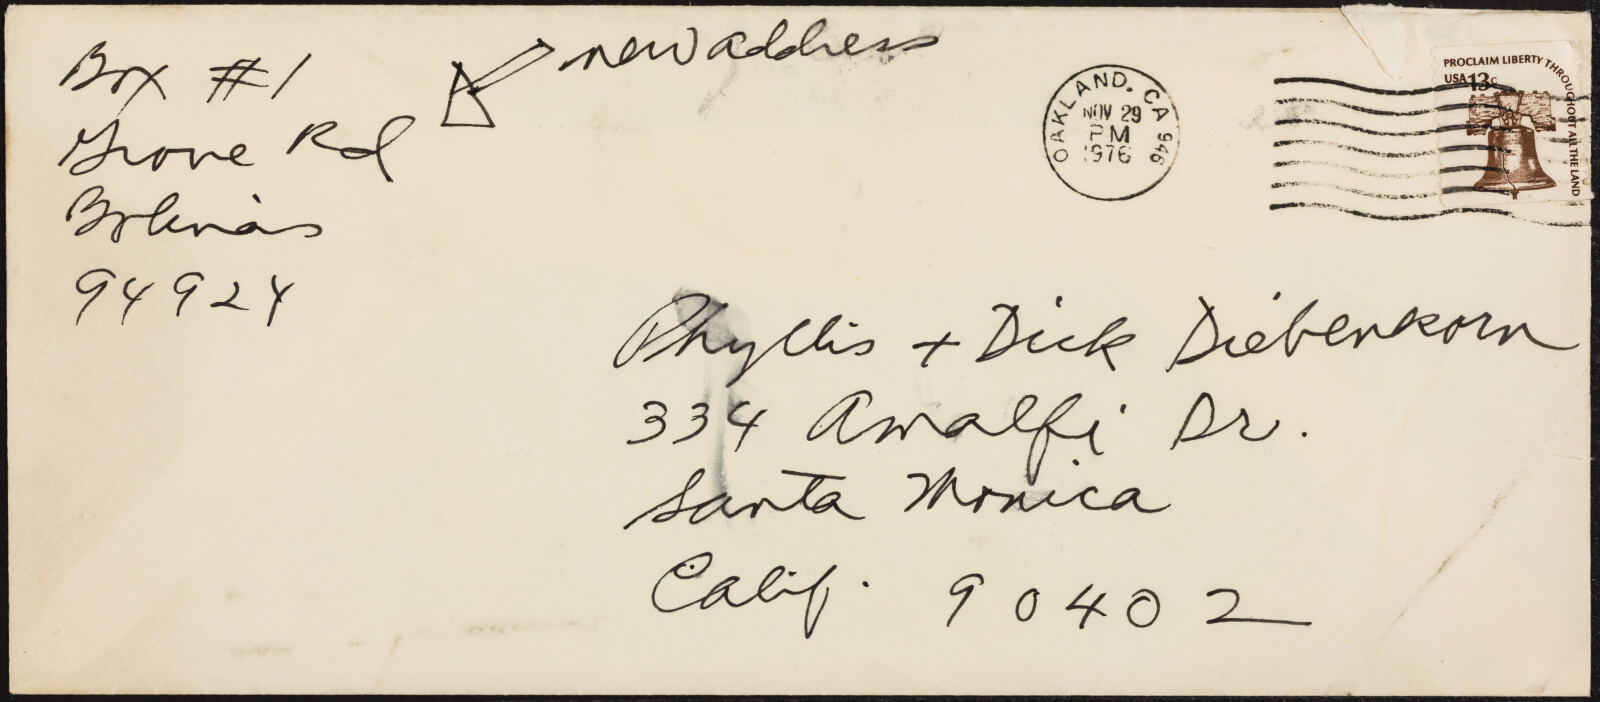 Box #1
Grove Rd
Bolinas
94924
new address
OAKLAND, CA 946
NOV 29
PM
1976
PROCLAIM LIBERTY THROUGHOUT ALL THE LAND
USA 13c
Phyllis + Dick Diebenkorn
334 Amalfi Dr.
Santa Monica
Calif. 90402